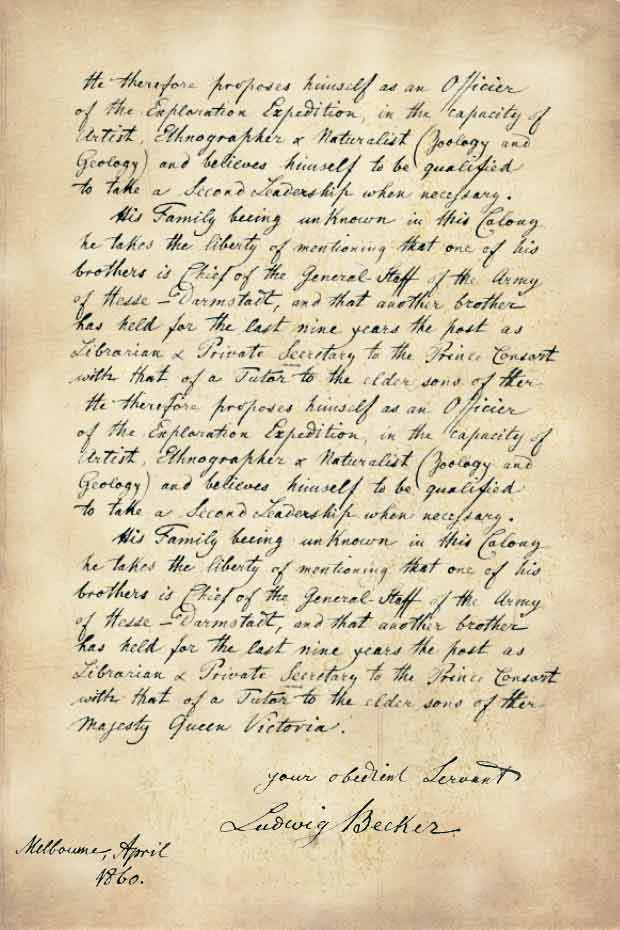 He therefore proposes himself as an Officier
of the Exploration Expedition, in the capacity of
Artist, Ethnographer & Naturalist (Zoology and
Geology) and believes himself to be qualified
to take a Second Leadership when necessary.
His Family beeing unKnown in this Colony
he takes the liberty of mentioning that one of his
brothers is Chief of the General Staff of the Army
of Hesse-Darmstadt, and that another brother
has held for the last nine years the post as
Librarian & Private Secretary to the Prince Consort
with that of a Tutor to the elder sons of Her
He therefore proposes himself as an Officier
of the Exploration Expedition, in the capacity of
Artist, Ethnographer & Naturalist (Zoology and
Geology) and believes himself to be qualified
to take a Second Leadership when necessary.
His Family beeing unKnown in this Colony
he takes the liberty of mentioning that one of his
brothers is Chief of the General Staff of the Army
of Hesse-Darmstadt, and that another brother
has held for the last nine years the post as
Librarian & Private Secretary to the Prince Consort
with that of a Tutor to the elder sons of Her
Majesty Queen Victoria.
your obedient Servant
Ludwig Becker
Melbourne, April
1860.